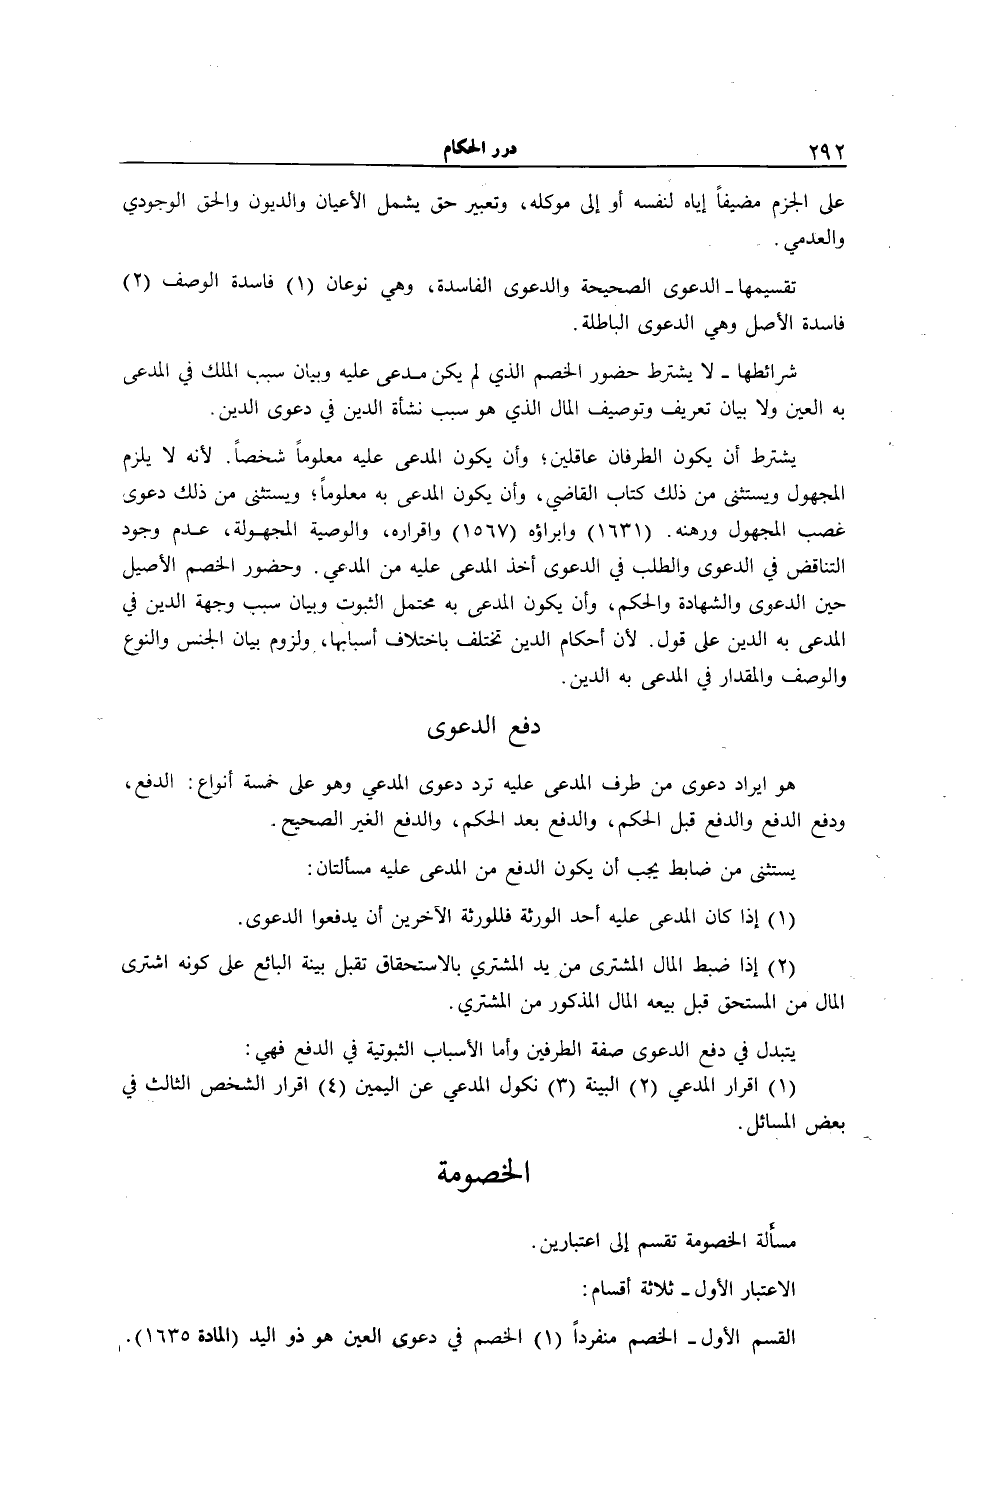 ٢٩٢
درر الحكام
على الجزم مضيفاً إياه لنفسه أو إلى موكله، وتعبير حق يشمل الأعيان والديون والحق الوجودي
والعدمي.
تقسيمها ـ الدعوى الصحيحة والدعوى الفاسدة، وهي نوعان (١) فاسدة الوصف (٢)
فاسدة الأصل وهي الدعوى الباطلة.
شرائطها ـ لا يشترط حضور الخصم الذي لم يكن مدعى عليه وبيان سبب الملك في المدعى
به العين ولا بيان تعريف وتوصيف المال الذي هو سبب نشأة الدين في دعوى الدين.
يشترط أن يكون الطرفان عاقلين؛ وأن يكون المدعى عليه معلوماً شخصاً. لأنه لا يلزم
المجهول ويستثنى من ذلك كتاب القاضي، وأن يكون المدعى به معلوماً؛ ويستثنى من ذلك دعوى
غصب المجهول ورهنه. (١٦٣١) وابراؤه (١٥٦٧) واقراره، والوصية المجهولة، عدم وجود
التناقض في الدعوى والطلب في الدعوى أخذ المدعى عليه من المدعي. وحضور الخصم الأصيل
حين الدعوى والشهادة والحكم، وأن يكون المدعى به محتمل الثبوت وبيان سبب وجهة الدين في
المدعى به الدين على قول. لأن أحكام الدين تختلف باختلاف أسبابها، ولزوم بيان الجنس والنوع
والوصف والمقدار في المدعى به الدين.
دفع الدعوى
هو ايراد دعوى من طرف المدعى عليه ترد دعوى المدعي وهو على خمسة أنواع: الدفع،
ودفع الدفع والدفع قبل الحكم، والدفع بعد الحكم، والدفع الغير الصحيح.
يستثنى من ضابط يجب أن يكون الدفع من المدعى عليه مسألتان:
(١) إذا كان المدعى عليه أحد الورثة فللورثة الآخرين أن يدفعوا الدعوى.
(٢) إذا ضبط المال المشترى من يد المشتري بالاستحقاق تقبل بينة البائع على كونه اشترى
المال من المستحق قبل بيعه المال المذكور من المشتري.
يتبدل في دفع الدعوى صفة الطرفين وأما الأسباب الثبوتية في الدفع فهي:
(١) اقرار المدعي (٢) البينة (٣) نكول المدعي عن اليمين (٤) اقرار الشخص الثالث في
بعض المسائل.
الخصومة
مسألة الخصومة تقسم إلى اعتبارين.
الاعتبار الأول ـ ثلاثة أقسام:
القسم الأول ـ الخصم منفرداً (١) الخصم في دعوى العين هو ذو اليد (المادة ١٦٣٥).